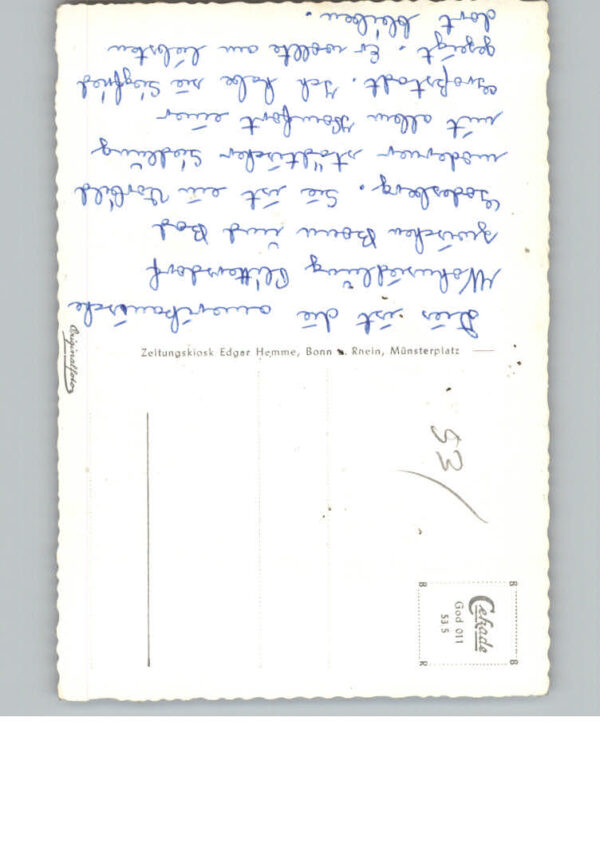 Dies ist die amerikanische
Wohnsiedlung Plittersdorf
zwischen Bonn und Bad
Godesberg. Sie ist ein Vorbild
moderner städtischer Siedlung
mit allem Komfort einer
Großstadt. Ich habe sie Siegfried
gezeigt. Er wollte am liebsten
dort bleiben.
Originalfoto
Zeitungskiosk Edgar Hemme, Bonn a. Rhein, Münsterplatz
53/
B
B
B
R
Cekade
God 011
53 S